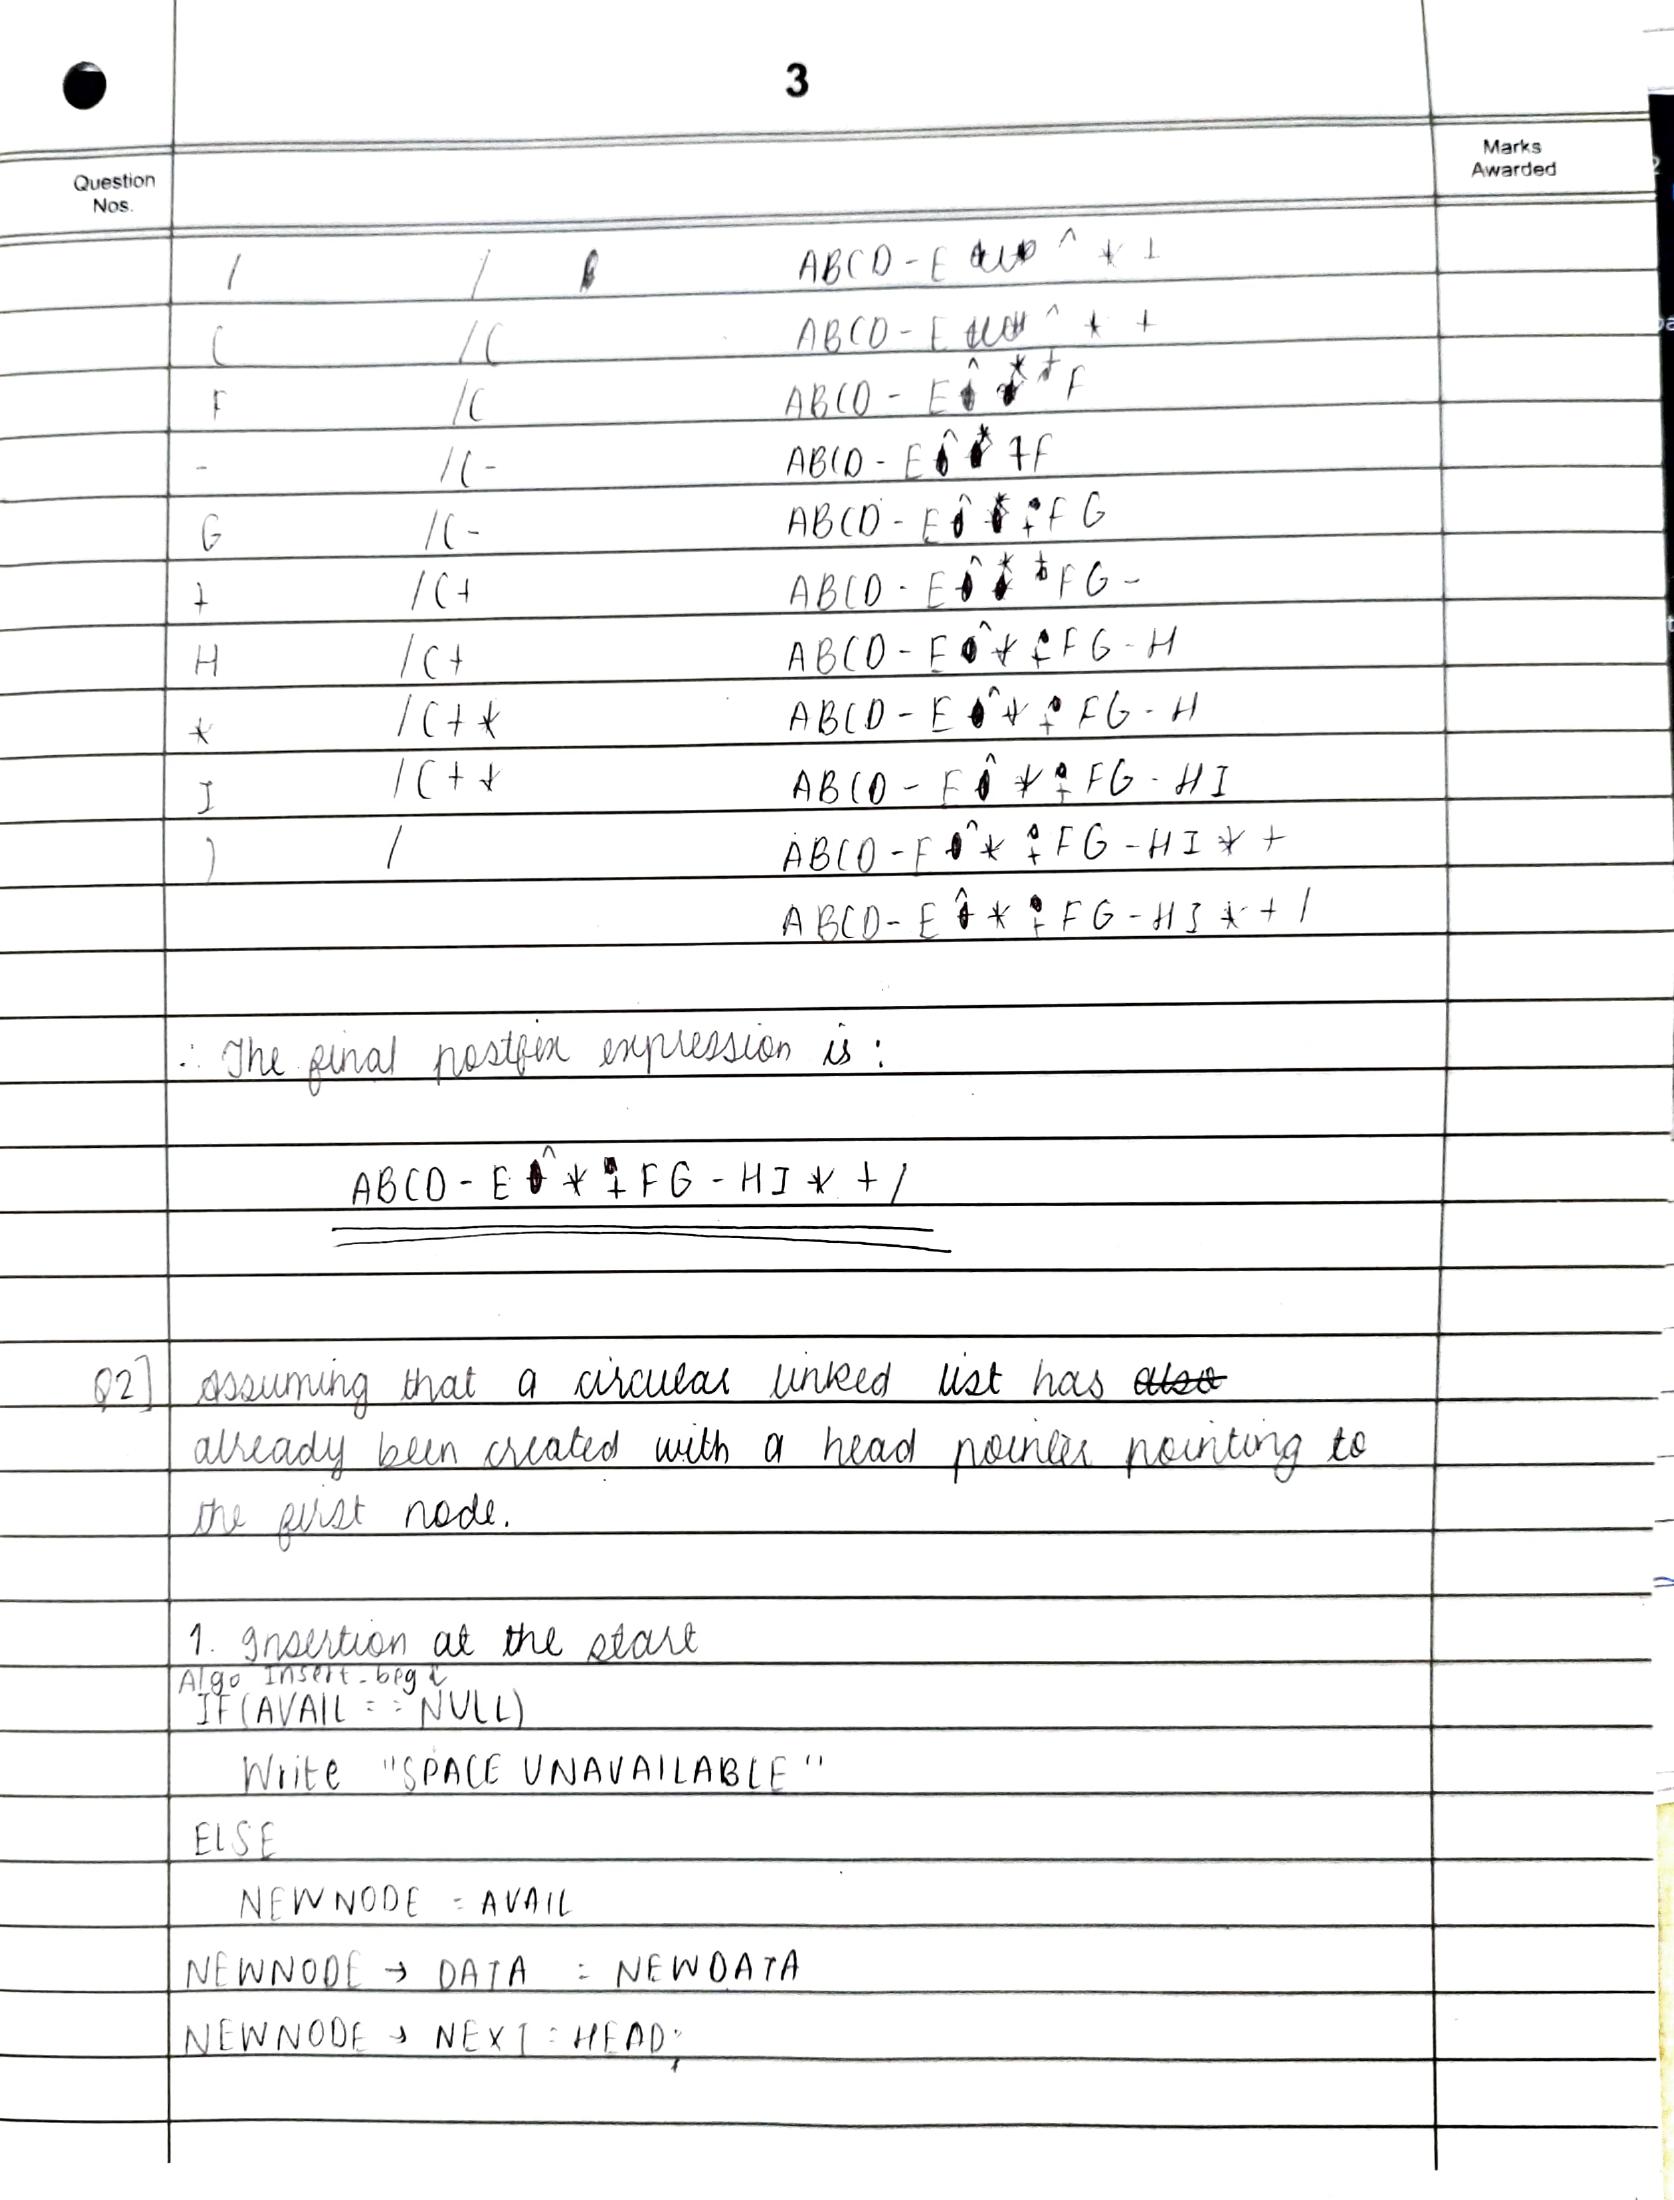 3
Question Nos.
Marks Awarded
/ / ABCD - E ^ * +
( /( ABCD - E ^ * +
F /( ABCD - E ^ * + F
- /( - ABCD - E ^ * + F
G /( - ABCD - E ^ * + F G
+ /( + ABCD - E ^ * + F G -
H /( + ABCD - E ^ * + F G - H
* /( + * ABCD - E ^ * + F G - H
I /( + * ABCD - E ^ * + F G - H I
) / ABCD - E ^ * + F G - H I * +
ABCD - E ^ * + F G - H I * + /
∴ The final postfix expression is :
ABCD - E ^ * + F G - H I * + /
Q2] Assuming that a circular linked list has also
already been created with a head pointer pointing to
the first node.
1. Insertion at the start
Algo Insert-beg
IF (AVAIL == NULL)
Write "SPACE UNAVAILABLE"
ELSE
NEWNODE = AVAIL
NEWNODE → DATA = NEWDATA
NEWNODE → NEXT = HEAD;